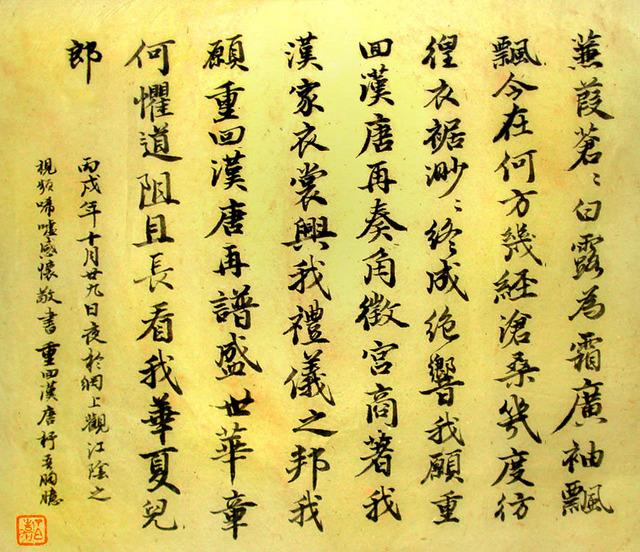 蒹葭蒼〻白露為霜廣袖飄
飄今在何方幾經滄桑幾度彷
徨衣裾渺〻終成絕響我願重
回漢唐再奏角徵宮商著我
漢家衣裳興我禮儀之邦我
願重回漢唐再譜盛世華章
何懼道阻且長看我華夏兒
郎
丙戌年十月廿九日夜於網上觀江陰之
視頻唏噓感懷敬書重回漢唐抒吾胸臆